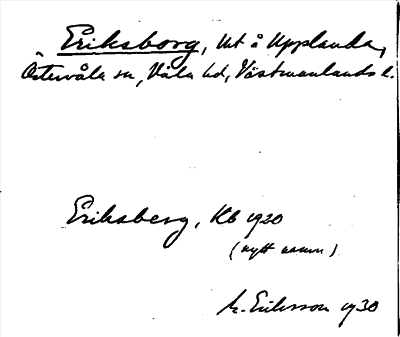 Eriksborg, ut å Upplanda,
Östervåla sn, Våla hd, Västmanlands l.
Eriksberg, Kb 1920
(nytt namn)
M. Eriksson 1930